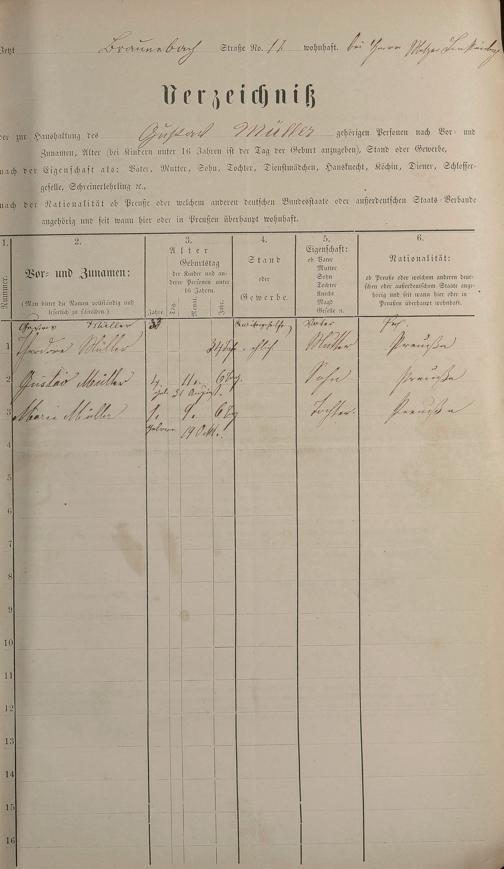 Jetzt Braunsbach Straße No. 11 wohnhaft. bei Herrn
Verzeichniß
der zur Haushaltung des Gustav Müller gehörigen Personen nach Vor- und
Zunamen, Alter (bei Kindern unter 16 Jahren ist der Tag der Geburt anzugeben), Stand oder Gewerbe,
nach der Eigenschaft als: Vater, Mutter, Sohn, Tochter, Dienstmädchen, Hausknecht, Köchin, Diener, Schlosser-
geselle, Schreinerlehrling ꝛc.,
nach der Nationalität ob Preuße oder welchem anderen deutschen Bundesstaate oder außerdeutschen Staats-Verbande
angehörig und seit wann hier oder in Preußen überhaupt wohnhaft.
1.
Nummer.
2.
Vor- und Zunamen:
(Man bittet die Namen vollständig und
leserlich zu schreiben.)
3.
Alter
Geburtstag
der Kinder und an-
derer Personen unter
16 Jahren.
Jahre
Tag.
Monat.
Jahr.
4.
Stand
oder
Gewerbe.
5.
Eigenschaft:
ob Vater
Mutter
Sohn
Tochter
Knecht
Magd
Geselle ꝛc.
6.
Nationalität:
ob Preuße oder welchem anderen deut-
schen oder außerdeutschen Staate ange-
hörig und seit wann hier oder in
Preußen überhaupt wohnhaft.
Gustav Müller 33 Vater
1 Theodore Müller Mutter Preuße
2 Gustav Müller 4. 11. 6 Tg. Sohn Preuße
31 August.
3 Maria Müller 1. 9. 6 Tg Tochter. Preuße
19 Okt.
4
5
6
7
8
9
10
11
12
13
14
15
16